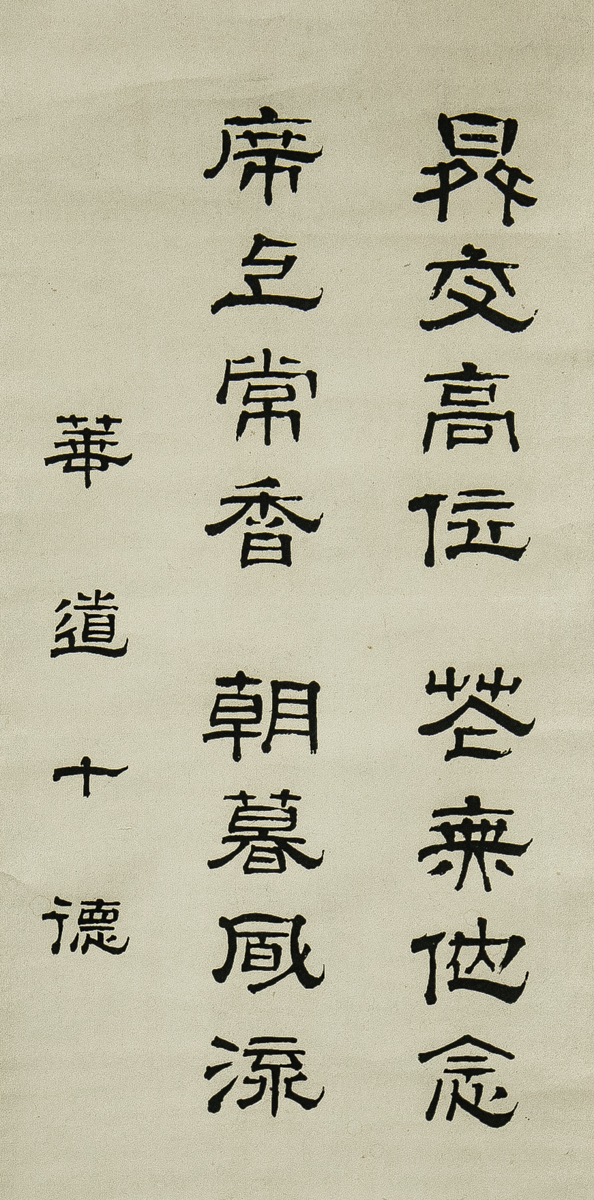 交高位 花無他念
席上常香 朝暮風流
華道十徳